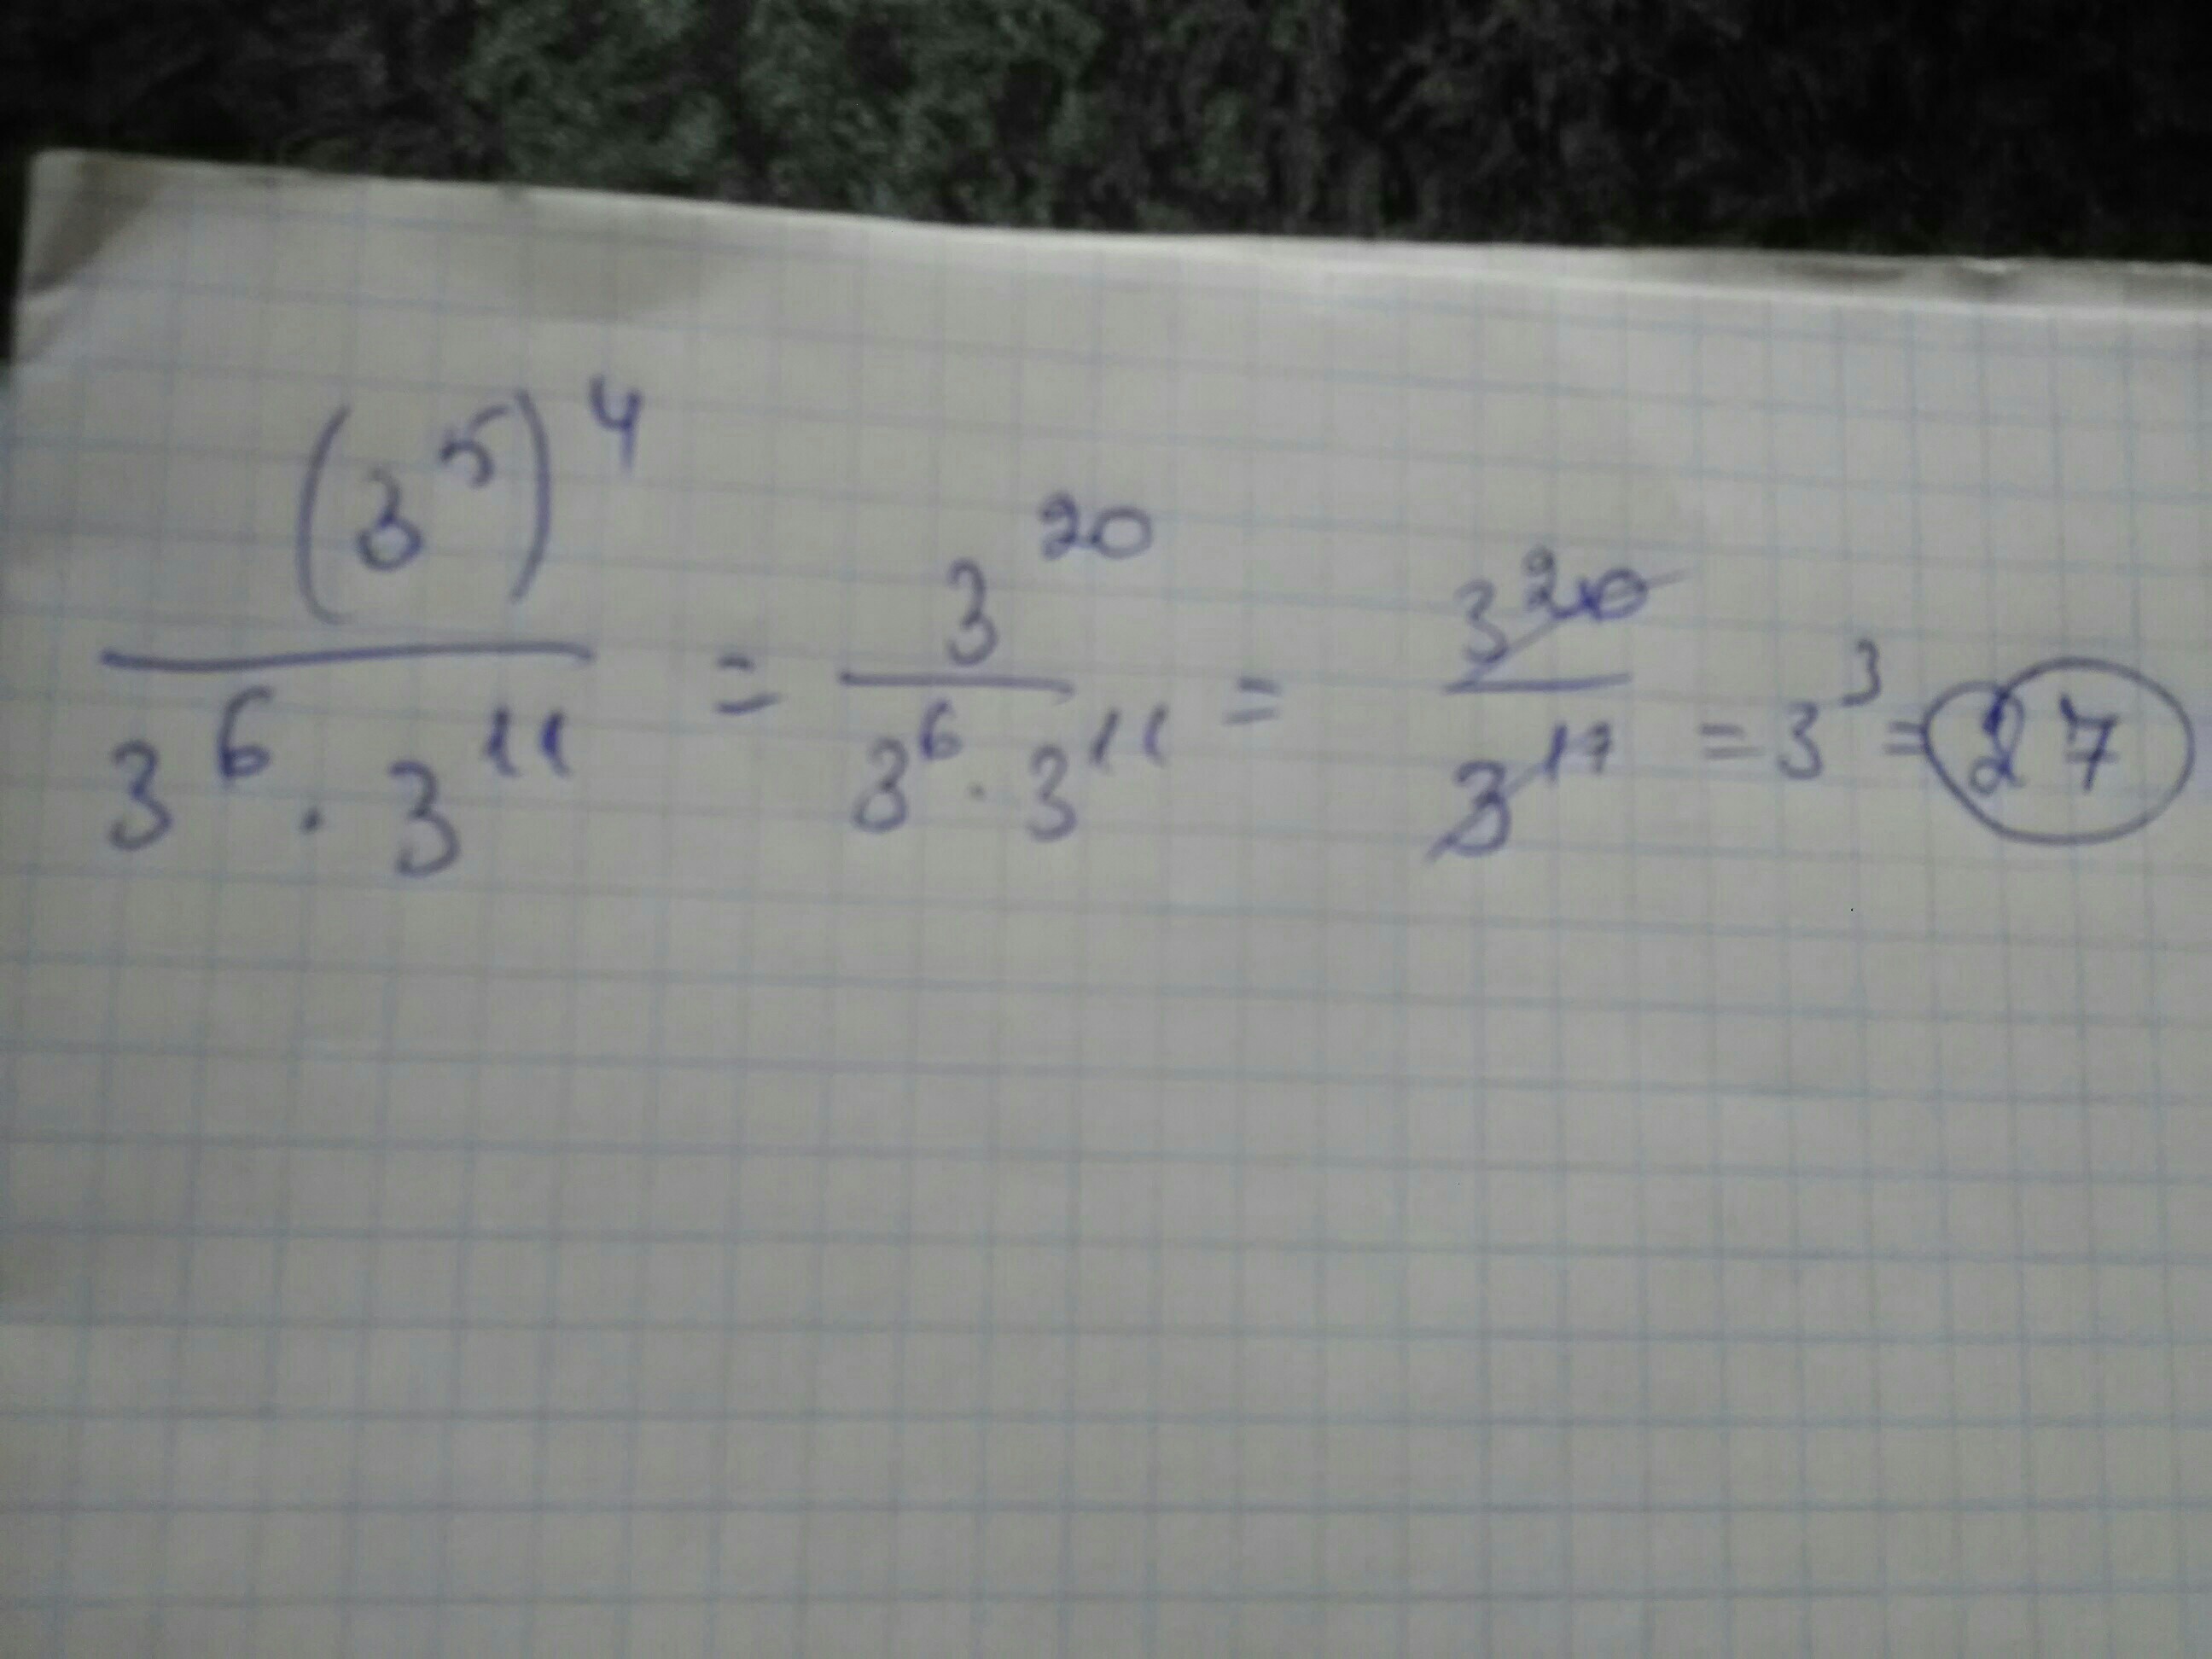 (3⁵)⁴ / 3⁶ · 3¹¹ = 3²⁰ / 3⁶ · 3¹¹ = 3²⁰ / 3¹⁷ = 3³ = 27